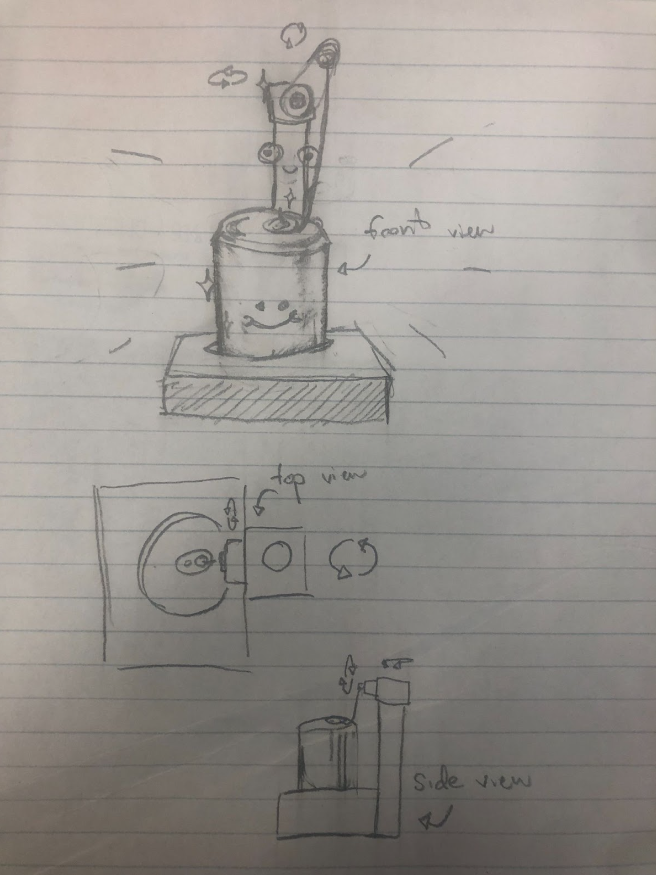 front view
top view
side view